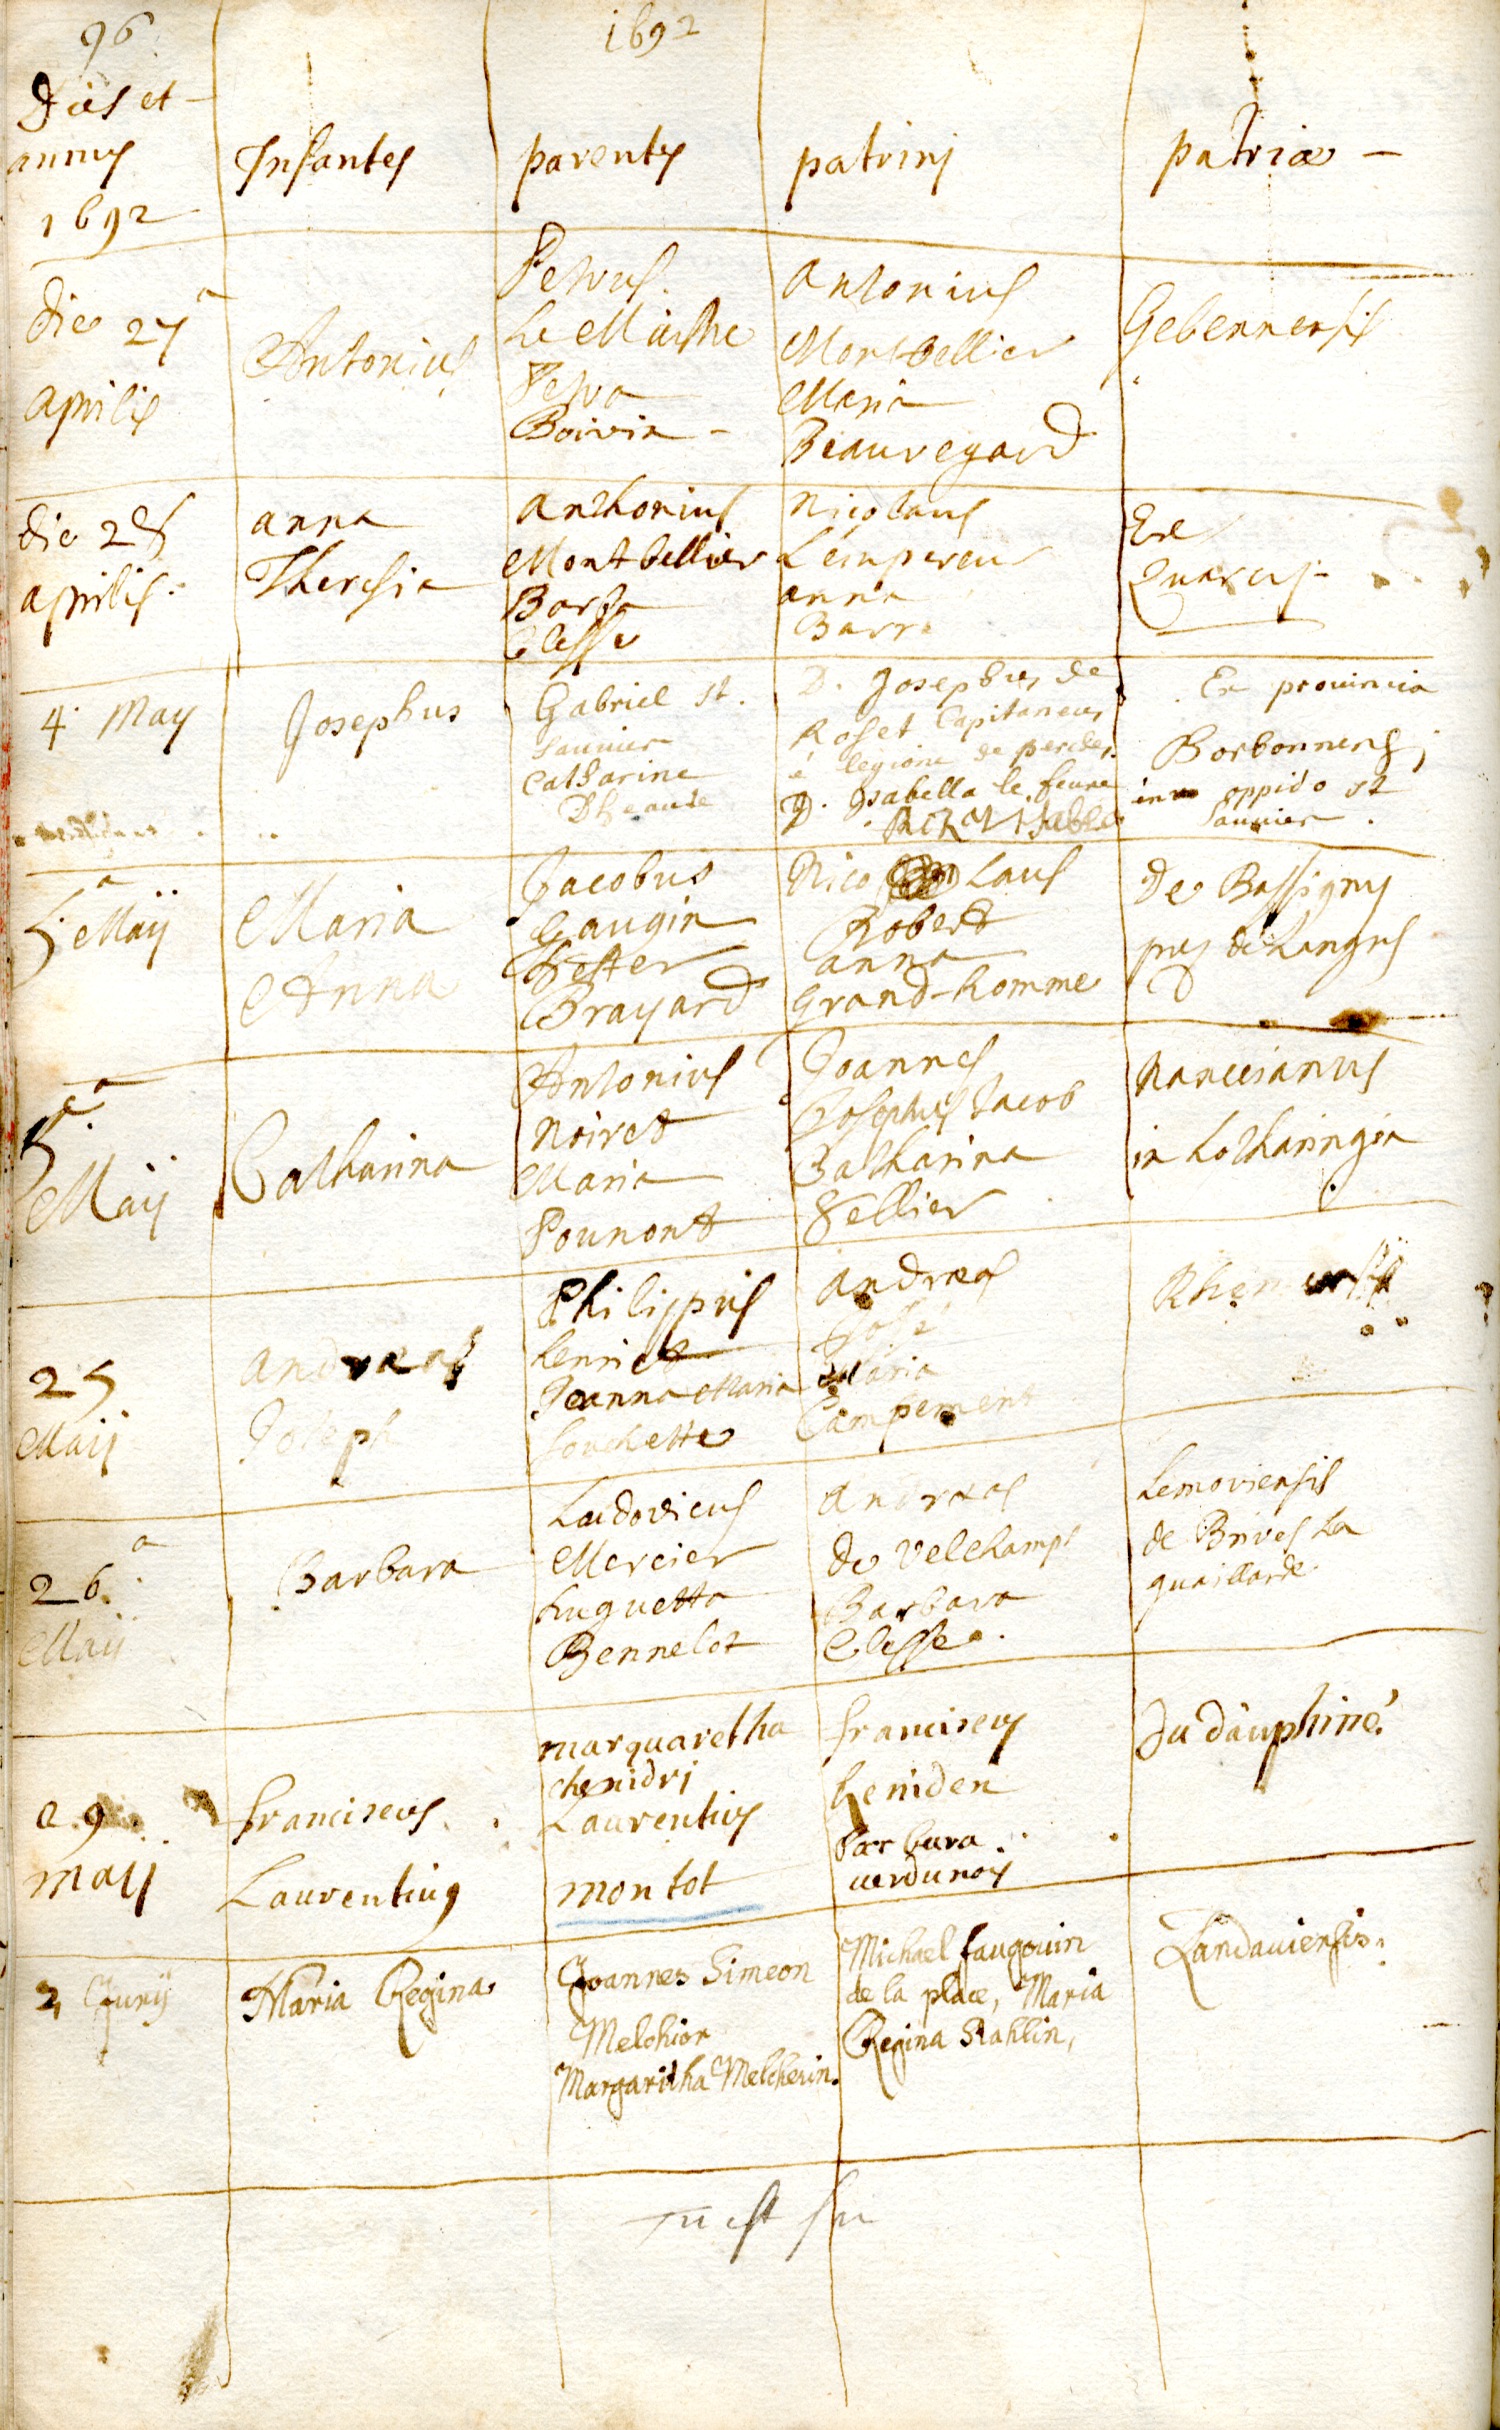 96
1692
Dies et
annus
1692
Infantes
parentes
patrini
patriae
die 27a
Aprilis
Antonius
Petrus
Le
Petra
Boivin
Antonius
Montbellier
Maria
Beauregard
Gebennensis
die 28
Aprilis
anna
Theresia
Anthonius
Montbellier
Barba
Clesse
Nicolaus
L'empereur
anna
Barre
Ex
4. May
Josephus
Gabriel st.
Saunier
Catharine
D. Josephus de
Roset Capitaneus
e legione de perche,
D. Isabella le feure
Ex prouincia
Borbonnensi
in oppido st
Saunier.
5a Maij
Maria
Anna
Jacobus
Gaugin
Hester
Brayard
Nico laus
Robert
anna
Grand-homme
De Bassigny
pres de Langres
5a
Maij
Catharina
Antonius
Noiret
Maria
Pounont
Joannes
Josephus Jacob
Catharina
Tellier
Nanceianus
in Lotharingia
25
Maij
andraeas
Joseph
Philippus
Henriet
Jeanna Maria
Souchette
andraeas
José
Maria
Campement
26a
Maij
Barbara
Ludovicus
Mercier
Huguetta
Bennelot
Andraeas
de Velchamps
Barbara
Clesse.
Lemoviensis
de Brives La
guaillarde
29
maij
franciscus
Laurentius
marguaretha
chenidri
Laurentius
montot
franciscus
heniden
barbara
verdunois
du dauphiné
2 Junij
Maria Regina
Joannes Simeon
Melchior
Margaritha Melcherin.
Michael faugouin
de la place, Maria
Regina Stahlin,
Landauiensis.